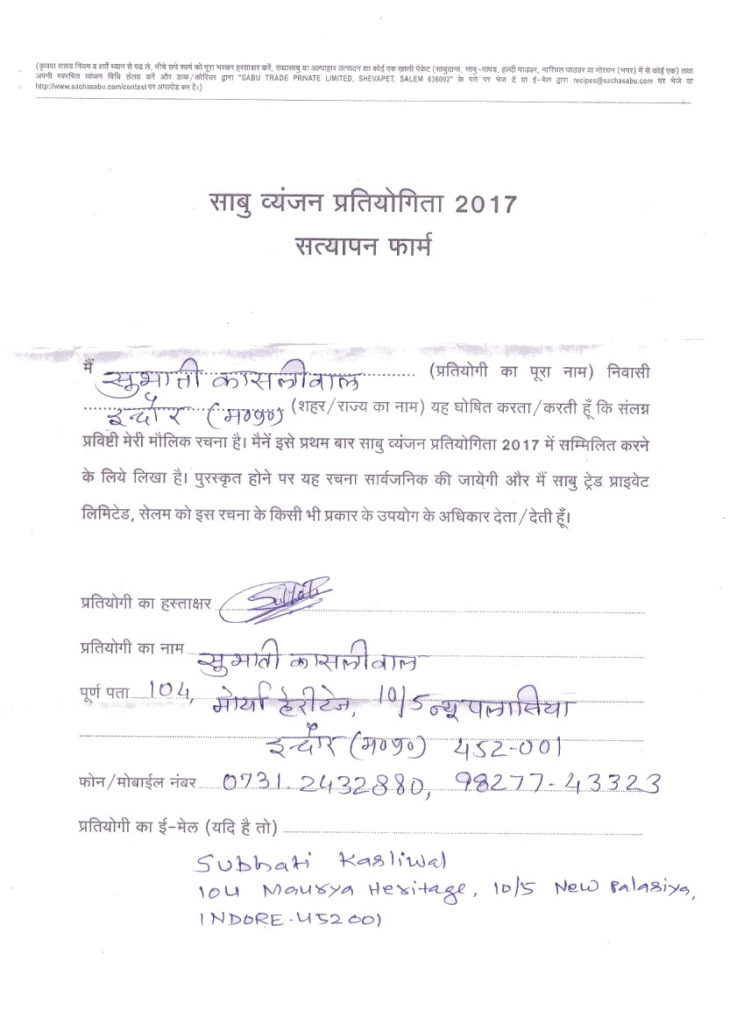 (कृपया सलग्न नियम व शर्ते ध्यान से पढ़ ले, नीचे छपे फार्म को पूरा भरकर हस्ताक्षर करें, सच्चासाबु या अल्पाहार उत्पादन का कोई एक खाली पेकेट (साबुदाना, साबु-पापड, हल्दी पाउडर, नारियल पाउडर या मोरधन (भगर) में से कोई एक) तथा
अपनी स्वरचित व्यंजन विधि संलग्न करें और डाक/कोरियर द्वारा "SABU TRADE PRIVATE LIMITED, SHEVAPET, SALEM 636002" के पते पर भेज दें या ई-मेल द्वारा recipes@sachasabu.com पर भेजे या
http://www.sachasabu.com/contest पर अपलोड कर दें।)
साबु व्यंजन प्रतियोगिता 2017
सत्यापन फार्म
मैं सुभाती कासलीवाल (प्रतियोगी का पूरा नाम) निवासी
इन्दौर (म०प्र०) (शहर/राज्य का नाम) यह घोषित करता/करती हूँ कि संलग्न
प्रविष्टी मेरी मौलिक रचना है। मैनें इसे प्रथम बार साबु व्यंजन प्रतियोगिता 2017 में सम्मिलित करने
के लिये लिखा है। पुरस्कृत होने पर यह रचना सार्वजनिक की जायेगी और मैं साबु ट्रेड प्राइवेट
लिमिटेड, सेलम को इस रचना के किसी भी प्रकार के उपयोग के अधिकार देता/देती हूँ।
प्रतियोगी का हस्ताक्षर
प्रतियोगी का नाम सुभाती कासलीवाल
पूर्ण पता 104, मोर्या हेरीटेज, 10/5 न्यू पलासिया
इन्दौर (म०प्र०) 452-001
फोन/मोबाईल नंबर 0731.2432880, 98277-43323
प्रतियोगी का ई-मेल (यदि है तो)
Subhati Kasliwal
104 Maurya Heritage, 10/5 New Palasiya,
INDORE-452001